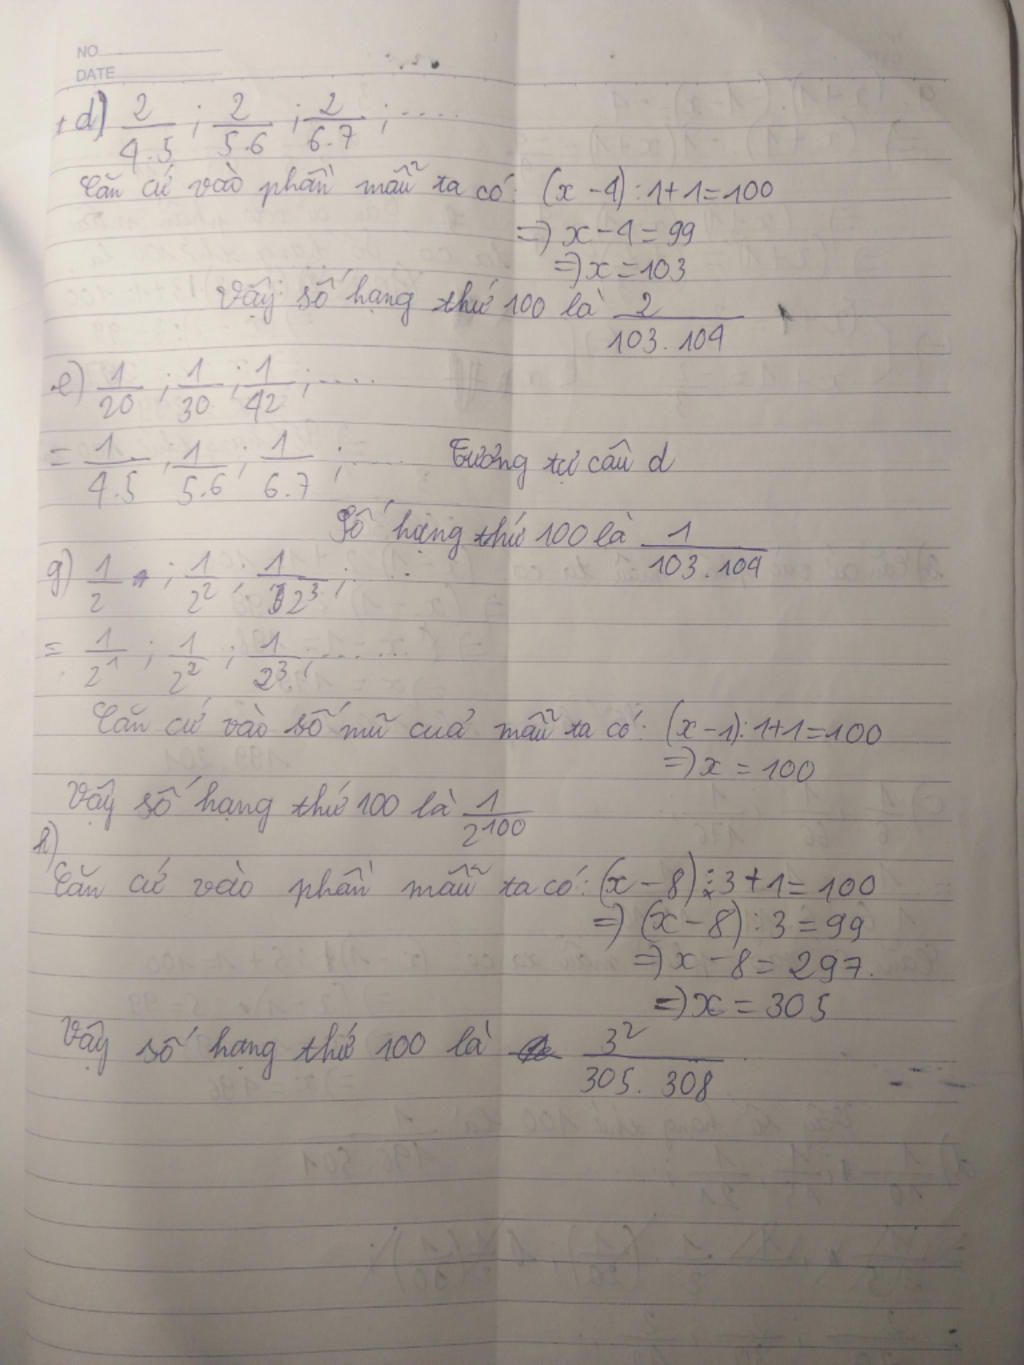 NO
DATE
+ d) 2/4.5 ; 2/5.6 ; 2/6.7 ; ....
Căn cứ vào phần mẫu ta có: (x - 4) : 1 + 1 = 100
=> x - 4 = 99
=> x = 103
Vậy số hạng thứ 100 là 2/103.104
e) 1/20 ; 1/30 ; 1/42 ; ....
= 1/4.5 ; 1/5.6 ; 1/6.7 ; .... Tương tự câu d
Số hạng thứ 100 là 1/103.104
g) 1/2 ; 1/2² ; 1/2³ ; ...
= 1/2¹ ; 1/2² ; 1/2³ ; ....
Căn cứ vào số mũ của mẫu ta có: (x - 1) : 1 + 1 = 100
=> x = 100
Vậy số hạng thứ 100 là 1/2¹⁰⁰
h)
Căn cứ vào phần mẫu ta có: (x - 8) : 3 + 1 = 100
=> (x - 8) : 3 = 99
=> x - 8 = 297.
=> x = 305
Vậy số hạng thứ 100 là 3²/305.308